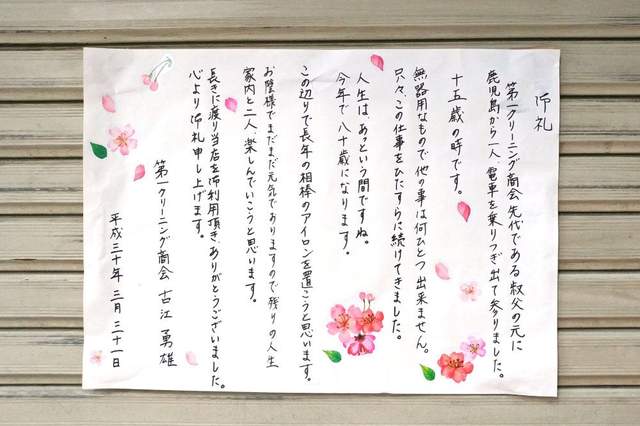 御礼
第一クリーニング商会先代である叔父の元に
鹿児島から一人、電車を乗りつぎ出て参りました。
十五歳の時です。
無器用なもので他の事は何ひとつ出来ません。
只々、この仕事をひたすらに続けてきました。
人生は、あっという間ですね。
今年で八十歳になります。
この辺りで長年の相棒のアイロンを置こうと思います。
お陰様でまだまだ元気でありますので残りの人生
家内と二人、楽しんでいこうと思います。
長きに渡り当店を御利用頂き、ありがとうございました。
心より御礼申し上げます。
第一クリーニング商会 古江 勇雄
平成三十年 三月 三十一日